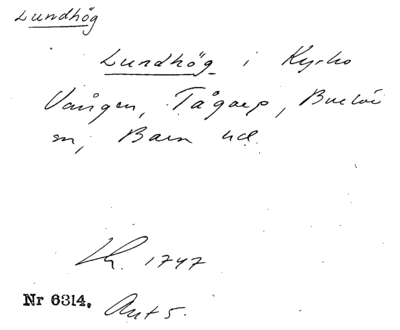 Lundhög
Lundhög i Kyrko
Vången, Tågarp, Burlöv
sn, Bara hd.
Lh. 1747
Nr 6314. Ant 5.